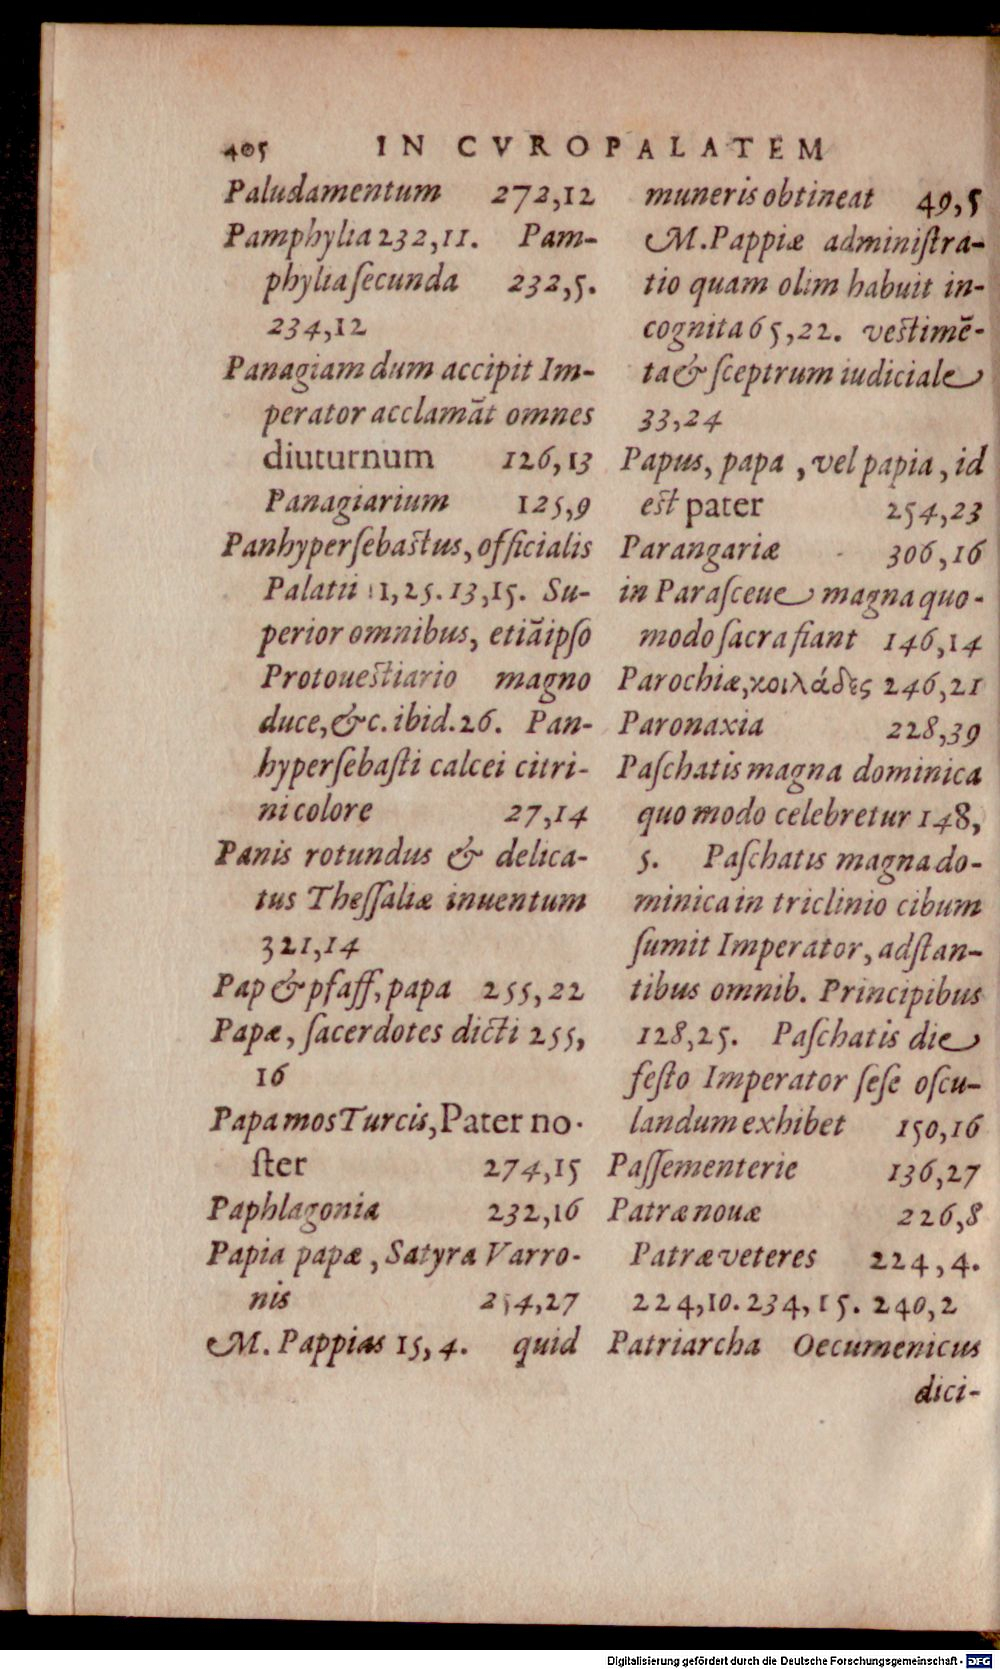 405 IN CVROPALATEM
Paludamentum 272,12
Pamphylia 232,11. Pam-
phylia ſecunda 232,5.
234,12
Panagiam dum accipit Im-
perator acclamãt omnes
diuturnum 126,13
Panagiarium 125,9
Panhyperſebastus, officialis
Palatii 11,25. 13,15. Su-
perior omnibus, etiã ipſo
Protouestiario magno
duce, &c. ibid. 26. Pan-
hyperſebaſti calcei citri-
ni colore 27,14
Panis rotundus & delica-
tus Theſſaliæ inuentum
321,14
Pap & pfaff, papa 255,22
Papæ, ſacerdotes dicti 255,
16
Papa mos Turcis, Pater no-
ſter 274,15
Paphlagonia 232,16
Papia papæ, Satyra Varro-
nis 254,27
M. Pappias 15,4. quid
muneris obtineat 49,5
M. Pappiæ adminiſtra-
tio quam olim habuit in-
cognita 65,22. vestimẽ-
ta & ſceptrum iudiciale
33,24
Papus, papa, vel papia, id
est pater 254,23
Parangariæ 306,16
in Paraſceue magna quo-
modo ſacra fiant 146,14
Parochiæ, κοιλάδες 246,21
Paronaxia 228,39
Paſchatis magna dominica
quo modo celebretur 148,
5. Paſchatis magna do-
minica in triclinio cibum
ſumit Imperator, adſtan-
tibus omnib. Principibus
128,25. Paſchatis die
feſto Imperator ſeſe oſcu-
landum exhibet 150,16
Paſſementerie 136,27
Patræ nouæ 226,8
Patræ veteres 224,4.
224,10. 234,15. 240,2
Patriarcha Oecumenicus
dici-
Digitalisierung gefördert durch die Deutsche Forschungsgemeinschaft - DFG